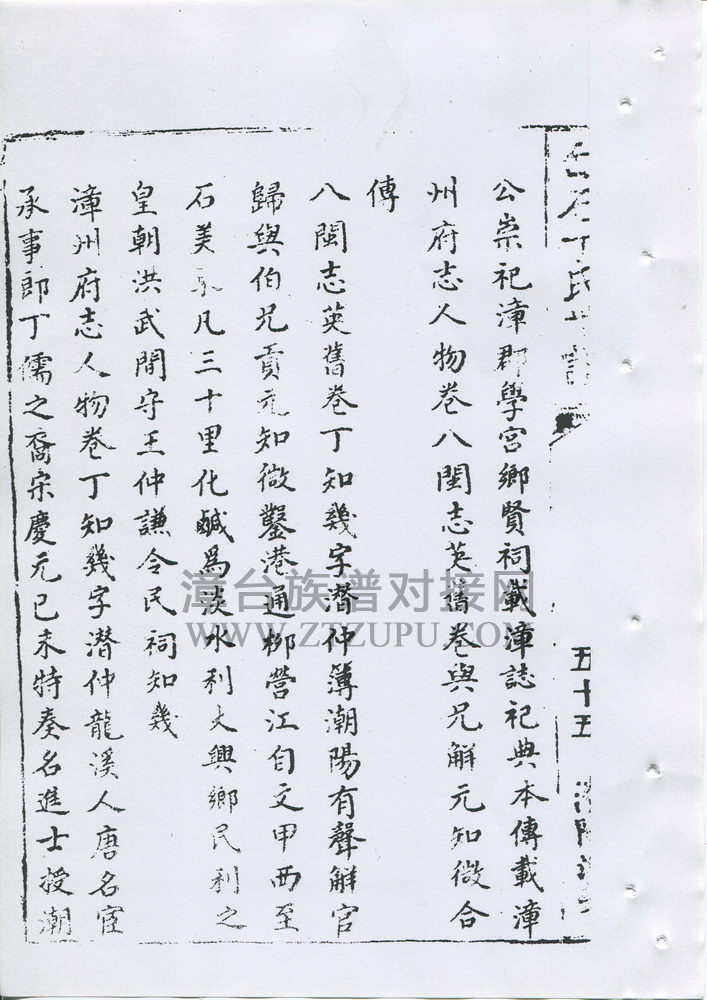 氏
五十五
公崇祀漳郡學宮鄉賢祠載漳誌祀典本傳載漳
州府志人物卷八閩志英舊卷與兄解元知微合
傳
八閩志英舊卷丁知幾字潛仲簿潮陽有聲解官
歸與伯兄貢元知微鑿港通柳營江自文甲西至
石美凡三十里化鹹爲淡水利大興鄉民利之
皇朝洪武間守王仲謙令民祠知幾
漳州府志人物卷丁知幾字潛仲龍溪人唐名宦
承事郎丁儒之裔宋慶元己未特奏名進士授潮
漳台族谱对接网
WWW.ZTZUPU.COM